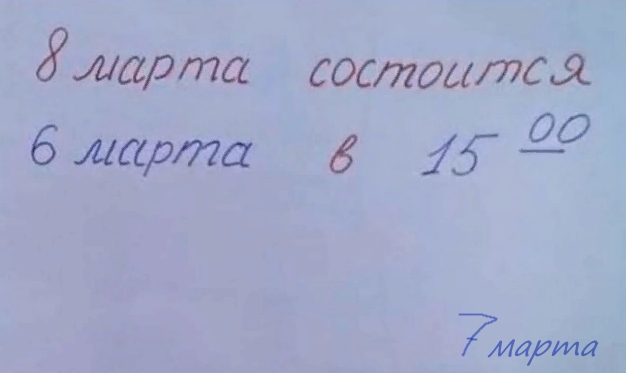 8 марта состоится
6 марта в 15 00
7 марта